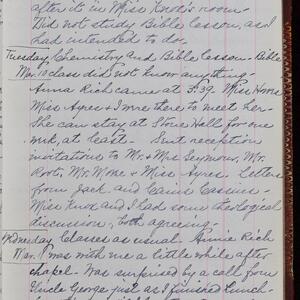 after it in Miss Knox's room-
Did not study Bible lesson, as I
had intended to do.
Tuesday, Chemistry and Bible lesson - Bible
Mar. 10 class did not know anything-
Anna Rich came at 5:39. Miss
Miss Ayres & I were there to meet her-
She can stay at Stone Hall for one
week, at least. Sent reception
invitations to Mr. & Mrs Seymour, Mr.
Root, Mr. Moke & Miss Ayres. Letters
from Jack and Carrie
Miss Knox and I had some theological
discussion, both agreeing.
Wednesday Classes as usual. Annie Rich
Mar. 11 was with me a little while after
chapel. Was surprised by a call from
Uncle George just as I finished lunch-